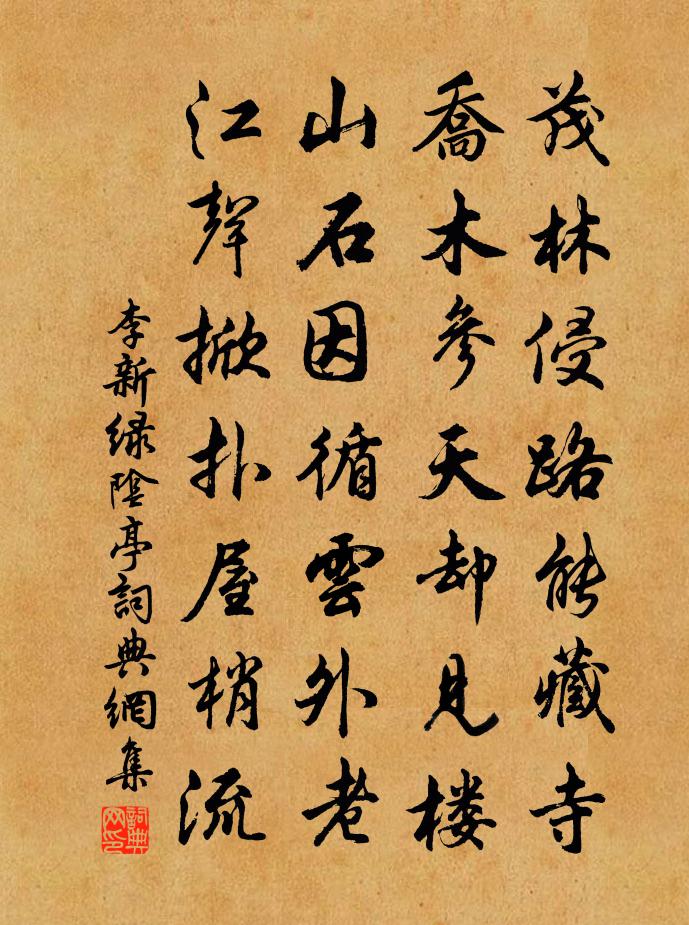 茂林侵路能藏寺
喬木參天却見楼
山石因循雲外老
江聲掀扑屋梢流
李新绿陰亭詞典網集
詞典网印